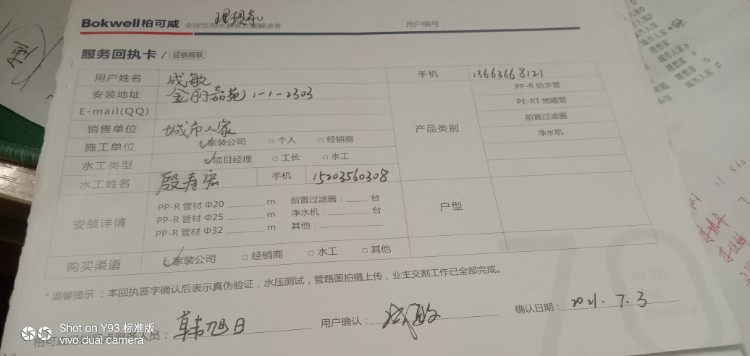 Bokwell柏可威
用户编号
服务回执卡 / 经销商联
用户姓名 成敏 手机 13663668121
安装地址 金丽嘉苑1-1-2303
E-mail(QQ)
销售单位 城市人家
施工单位 家装公司 □个人 □经销商
水工类型 项目经理 □工长 □水工
水工姓名 殷春宏 手机 15203560308
产品类别
PP-R 给水管
PE-RT 地暖管
前置过滤器
净水机
安装详情
PP-R 管材 Φ20 m 前置过滤器: 台
PP-R 管材 Φ25 m 净水机: 台
PP-R 管材 Φ32 m 其他:
户型
购买渠道 家装公司 □经销商 □水工 □其他
*温馨提示:本回执签字确认后表示真伪验证,水压测试,管路图拍摄上传,业主交割工作已全部完成。
人员: 韩旭日 用户确认: 成敏 确认日期: 2021.7.3
Shot on Y93 标准版
vivo dual camera